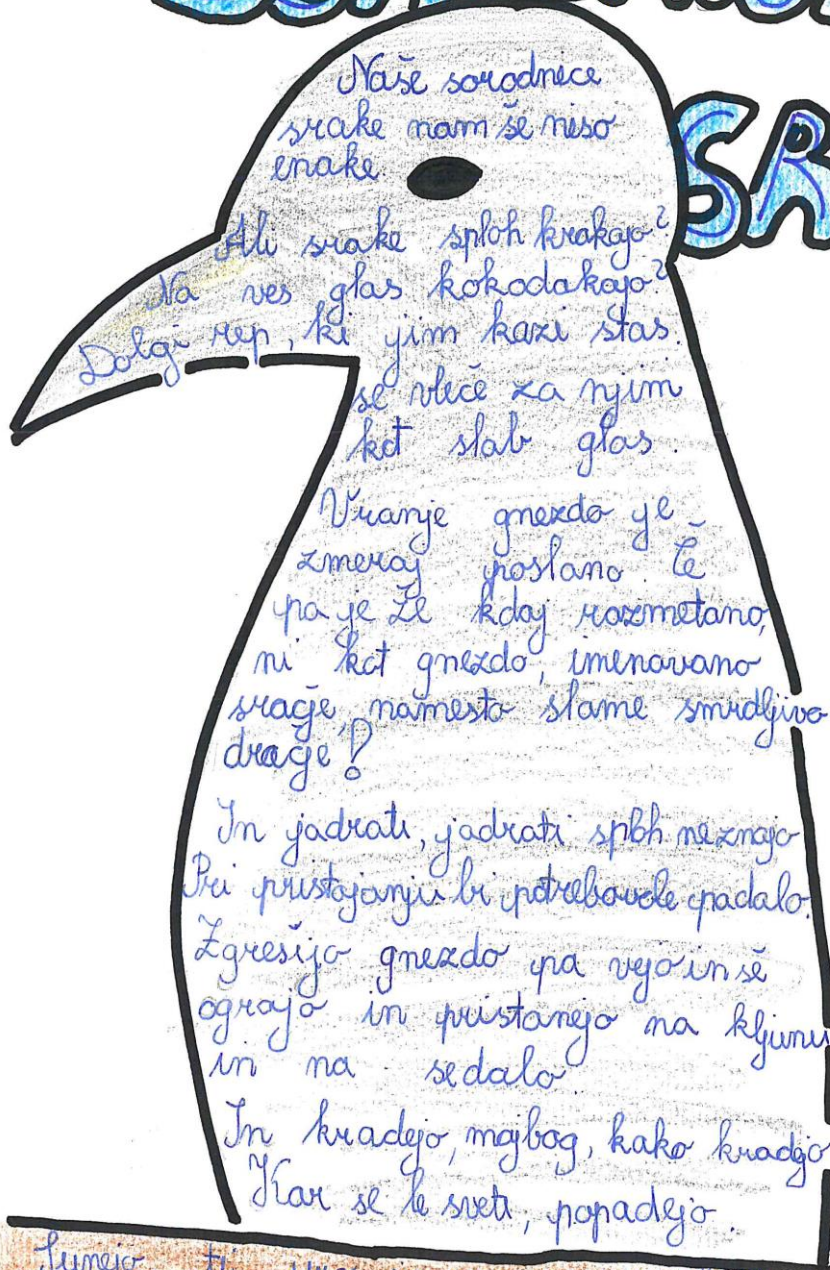 SR
Naše sorodnice
srake nam še niso
enake.
Ali srake sploh krakajo?
Na ves glas kokodakajo?
Dolgi rep, ki jim kazi stas.
se vleče za njim
kot slab glas.
Vranje gnezdo je
zmeraj postano. Če
pa je že kdaj razmetano,
ni kot gnezdo, imenovano
sračje, namesto slame smrdljivo
dračje!
In jadrati, jadrati sploh neznajo
Pri pristajanju bi potrebovale padalo.
Zgrešijo gnezdo pa vejo in še
ograjo in pristanejo na kljunu
in na sedalo.
In kradejo, mojbog, kako kradejo
Kar se le sveti, popadejo.